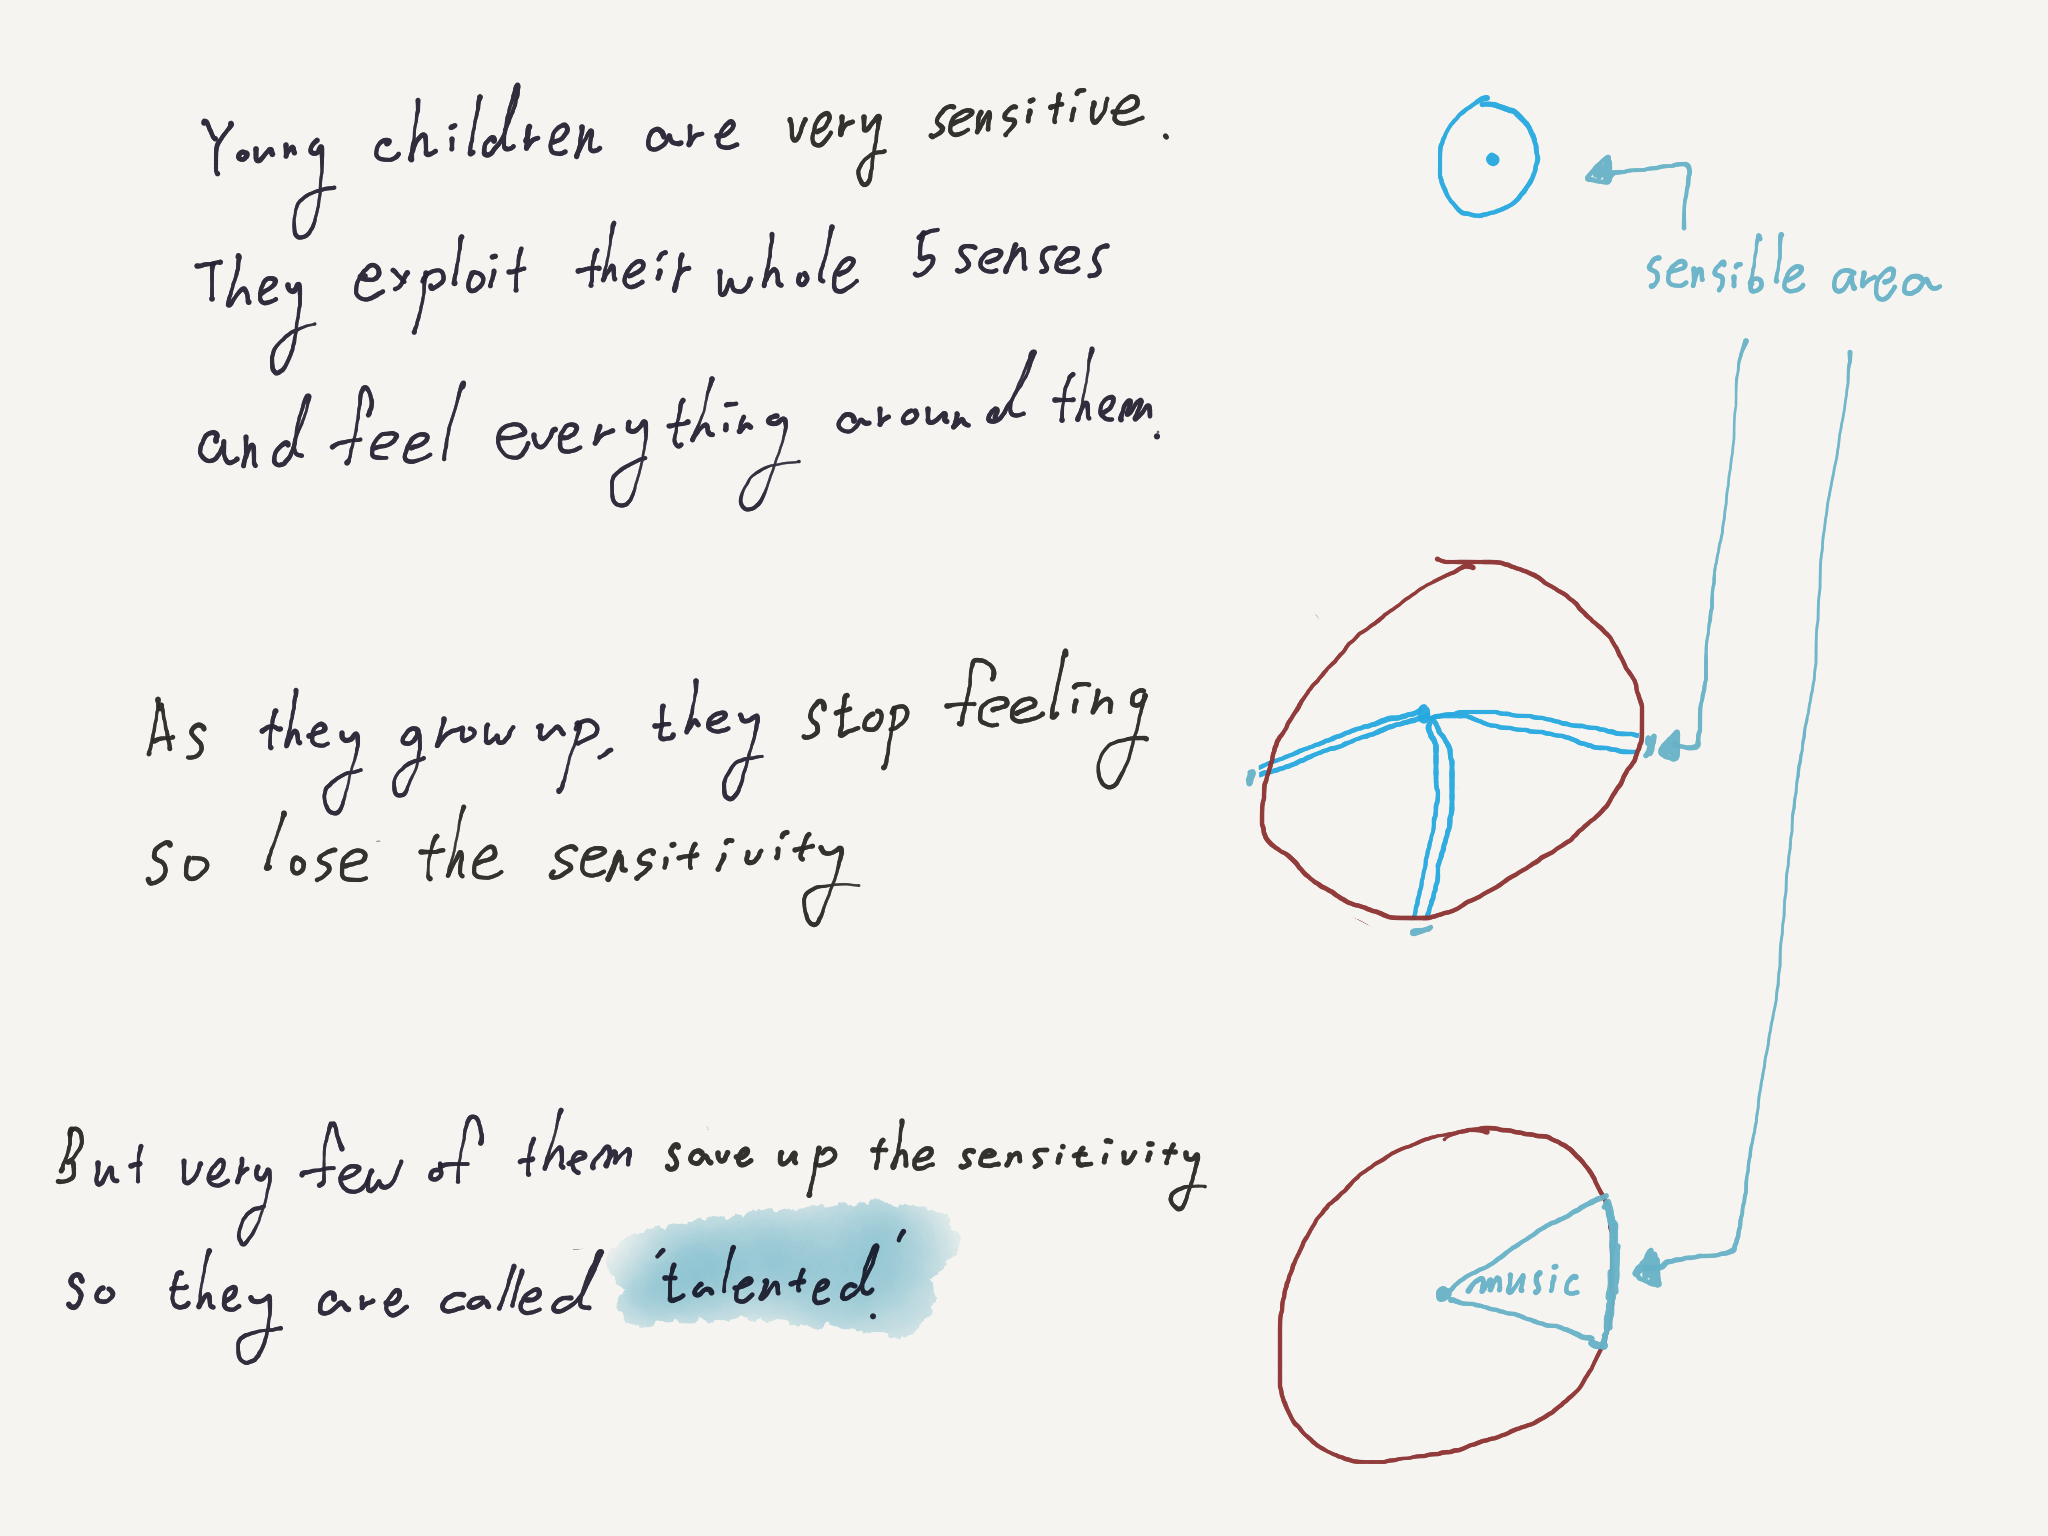 Young children are very sensitive.
They exploit their whole 5 senses
and feel everything around them.
sensible area
As they grow up, they stop feeling
so lose the sensitivity
But very few of them save up the sensitivity
so they are called 'talented.'
music